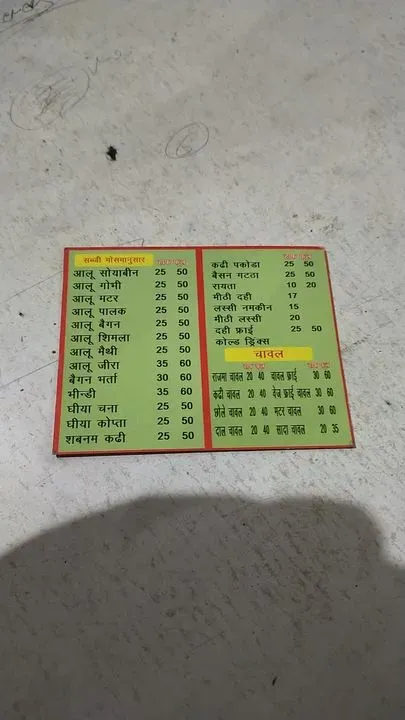 सब्जी मोसमानुसार हाफ फुल
आलू सोयाबीन 25 50
आलू गोभी 25 50
आलू मटर 25 50
आलू पालक 25 50
आलू बैगन 25 50
आलू शिमला 25 50
आलू मैथी 25 50
आलू जीरा 35 60
बैगन भर्ता 30 60
भीन्डी 35 60
घीया चना 25 50
घीया कोप्ता 25 50
शबनम कढी 25 50
हाफ फुल
कढी पकोडा 25 50
बैसन गटठा 25 50
रायता 10 20
मीठी दही 17
लस्सी नमकीन 15
मीठी लस्सी 20
दही फ्राई 25 50
कोल्ड ड्रिंक्स
चावल
राजमा चावल 20 40 चावल फ्राई 30 60
कढी चावल 20 40 वेज फ्राई चावल 30 60
छोले चावल 20 40 मटर चावल 30 60
दाल चावल 20 40 सादा चावल 20 35